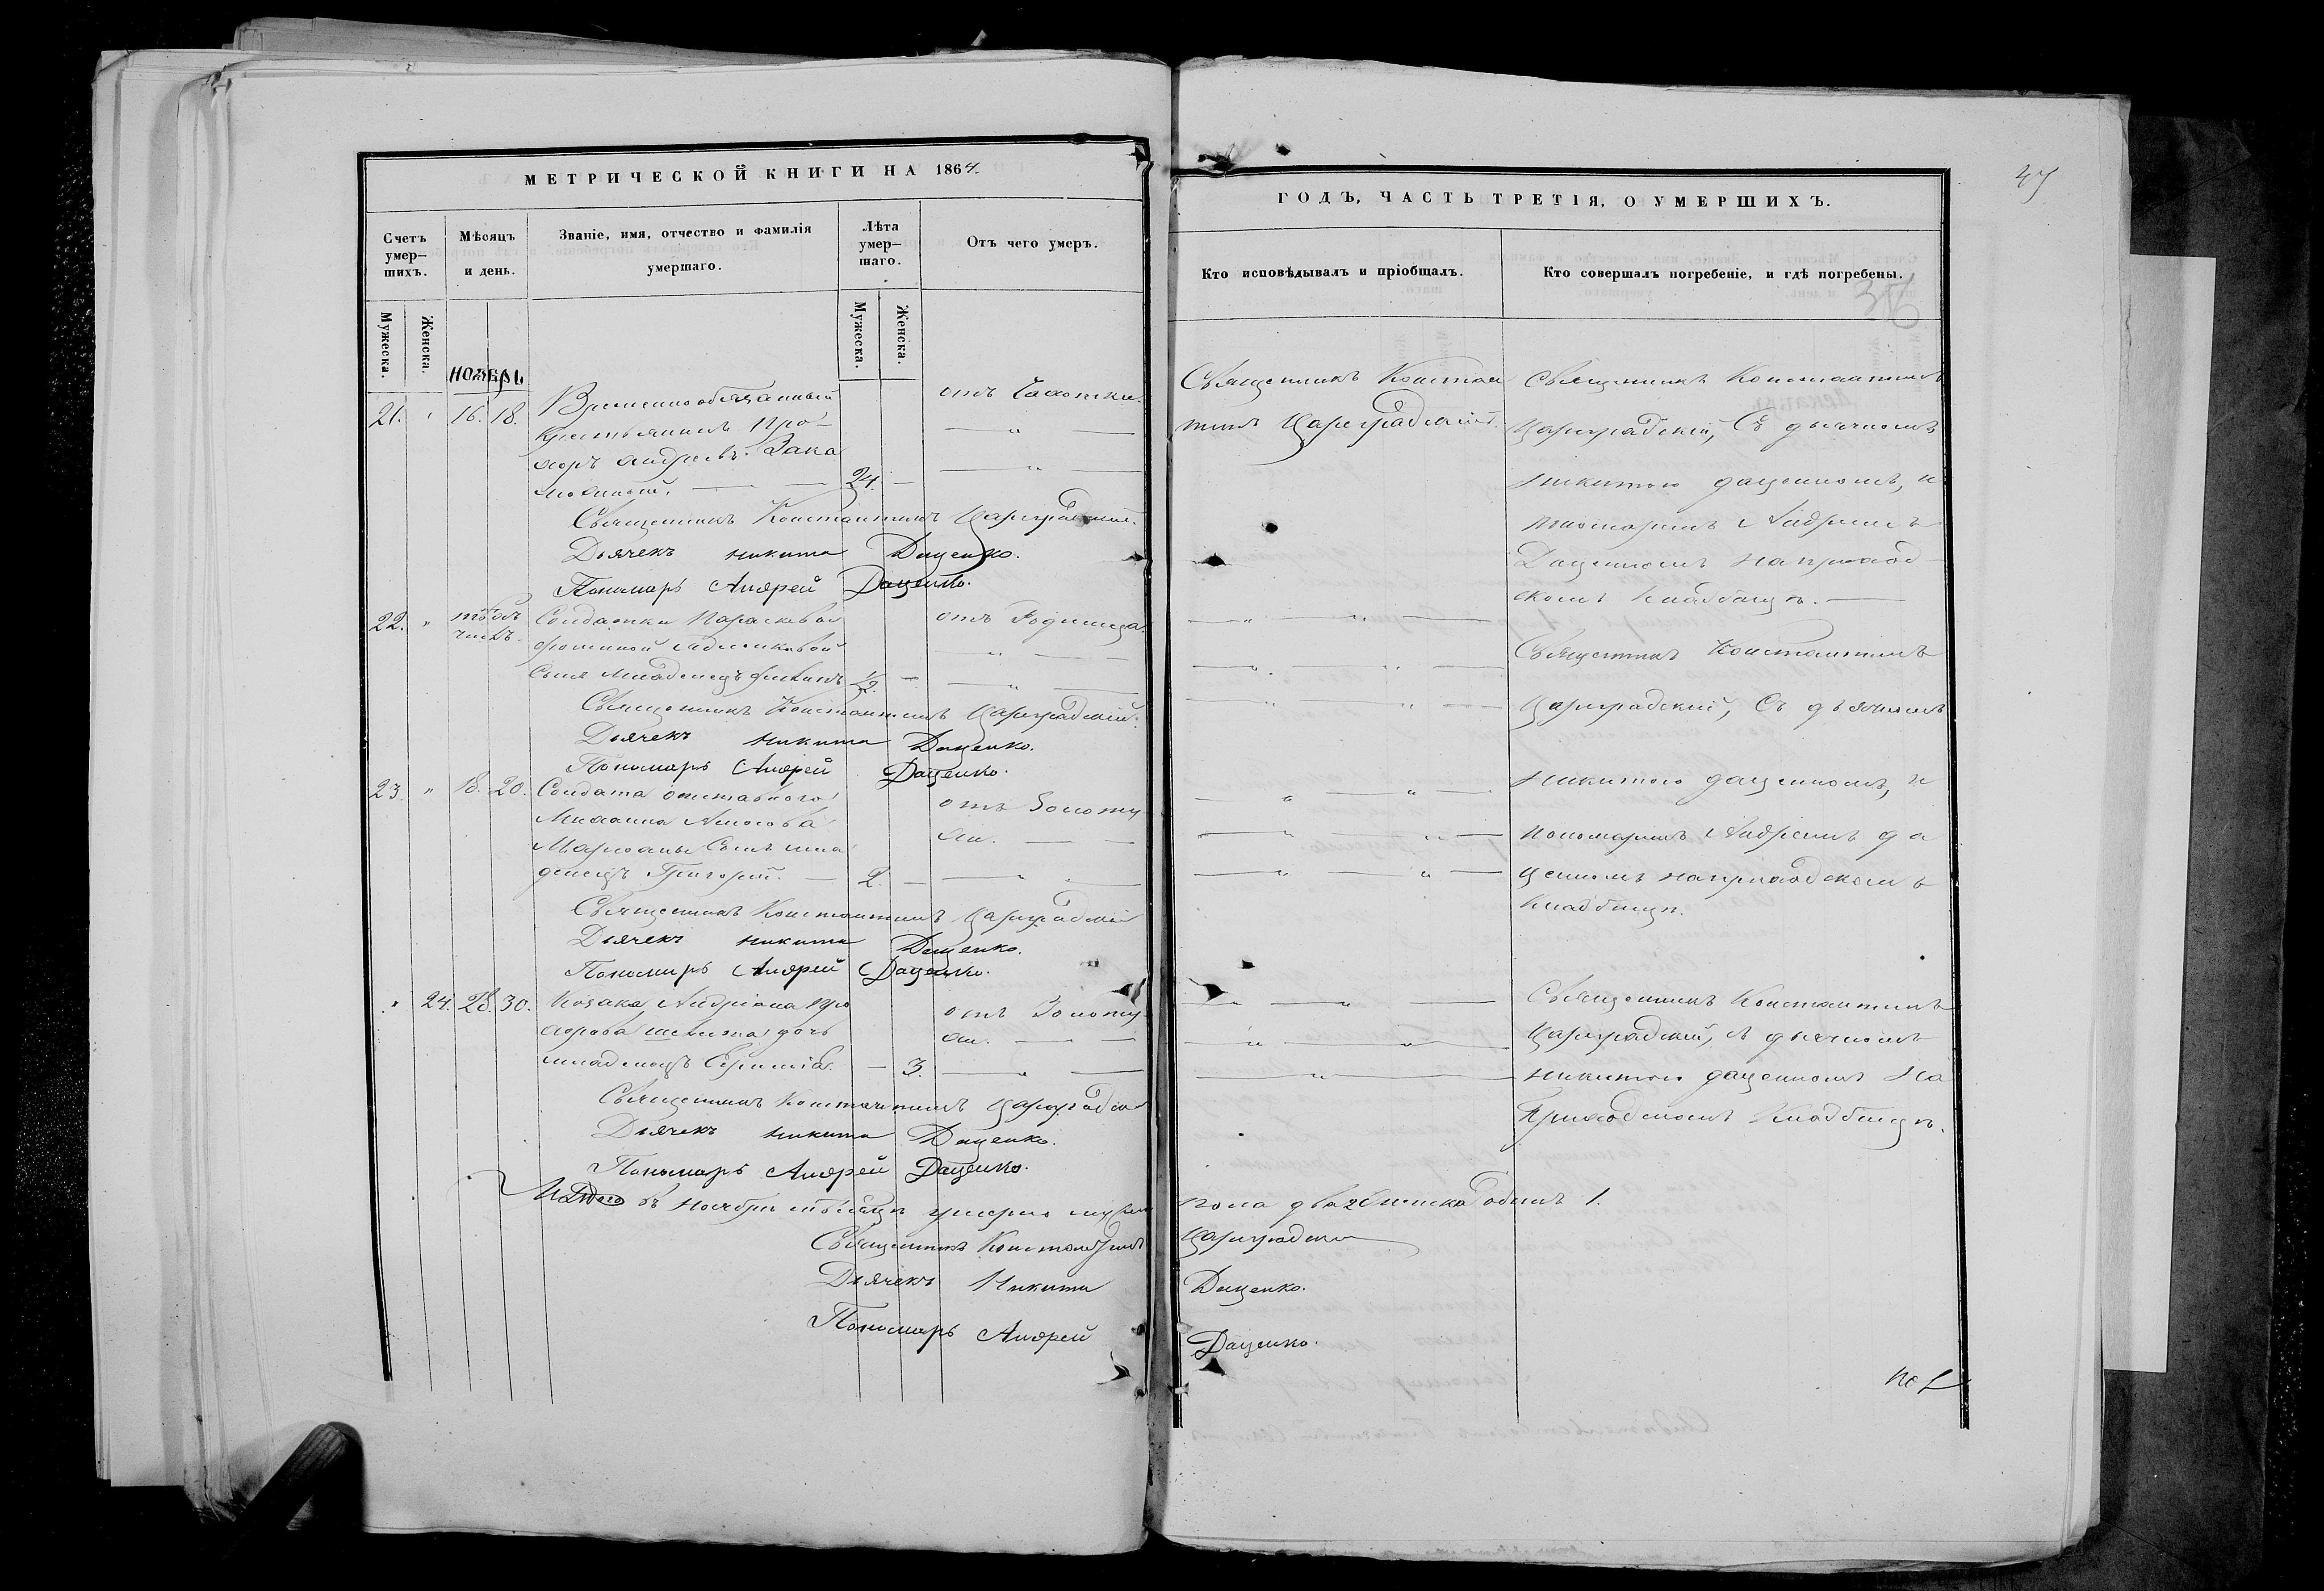 МЕТРИЧЕСКОЙ КНИГИ НА 1864.
Счетъ умер-шихъ.
Мѣсяцъ и день.
Званіе, имя, отчество и фамилія умершаго.
Лѣта умер-шаго.
Отъ чего умеръ.
Мужеска.
Женска.
Мужеска.
Женска.
ноябрь
21. 16. 18. Временнообязанный отъ Чахотки.
Крестьянинъ Про-
хоръ Андреевъ
24.
Священникъ Константинъ Цареградскій.
Дьячекъ Никита Даценко.
Пономарь Андрей Даценко.
22. Солдатки Параскевы отъ Родимца.
Сынъ младенецъ 1/2.
Священникъ Константинъ Цареградскій.
Дьячекъ Никита Даценко.
Пономарь Андрей Даценко.
23. 18. 20. Солдата отставного отъ Золоту
Михаила хи.
Сынъ мла
денецъ Григорій. 2.
Священникъ Константинъ Цареградскій
Дьячекъ Никита Даценко.
Пономарь Андрей Даценко.
24. 28. 30. Козака Андріана Про отъ Золоту
хорова дочь хи.
младенецъ 3.
Священникъ Константинъ Цареградскій
Дьячекъ Никита Даценко.
Пономарь Андрей Даценко.
Итого въ Ноябрѣ мѣсяцѣ умерло муж
Священникъ Константинъ
Дьячекъ Никита
Пономарь Андрей
47
ГОДЪ, ЧАСТЬ ТРЕТІЯ, О УМЕРШИХЪ.
Кто исповѣдывалъ и пріобщалъ.
Кто совершалъ погребеніе, и гдѣ погребены.
36
Священникъ Констан
тинъ Цареградскій.
Священникъ Константинъ
Цареградскій, Съ дьячкомъ
Никитою Даценкомъ, и
пономаремъ Андреемъ
Даценкомъ на приход-
скомъ Кладбищѣ.
Священникъ Константинъ
Цареградскій, Съ дьячкомъ
Никитою Даценкомъ, и
пономаремъ Андреемъ Да
ценкомъ на приходскомъ
Кладбищѣ.
Священникъ Константинъ
Цареградскій, съ дьячкомъ
Никитою Даценкомъ На
Приходскомъ Кладбищѣ.
пола два 2 женска одинъ 1.
Цареградскій
Даценко.
Даценко.